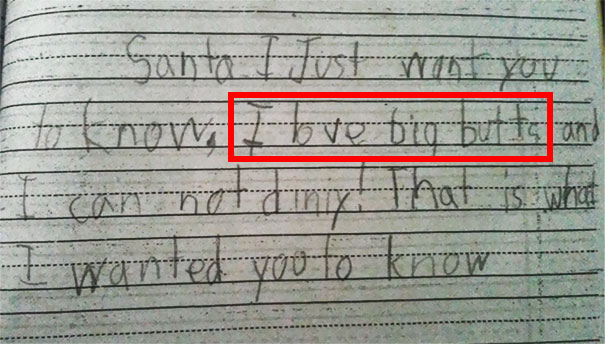 Santa I Just want you
to know, I love big butts and
I can not diniy! That is what
I wanted yoo to know